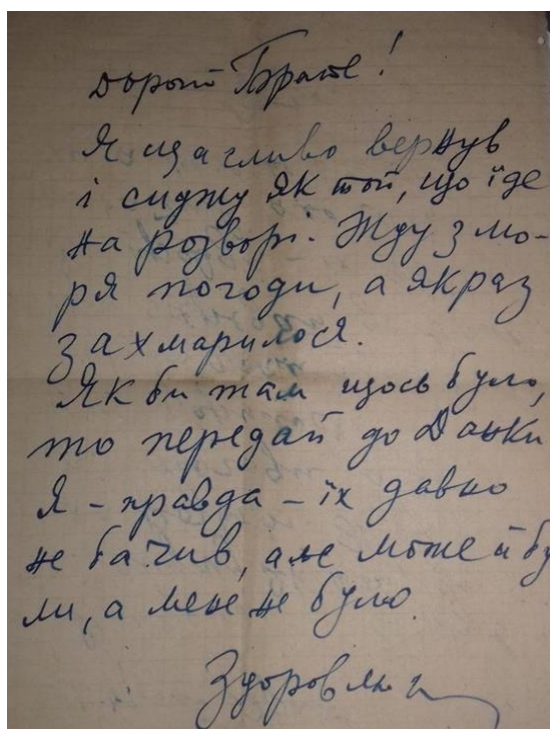 дорогий Брате!
Я щасливо вернув
і сиджу як той, що їде
на розворі. Жду з мо-
ря погоди, а якраз
захмарилося.
Як би там щось було,
то передай до Данки
Я - правда - їх давно
не бачив, але може й бу
ли, а мене не було.
Здоровлю